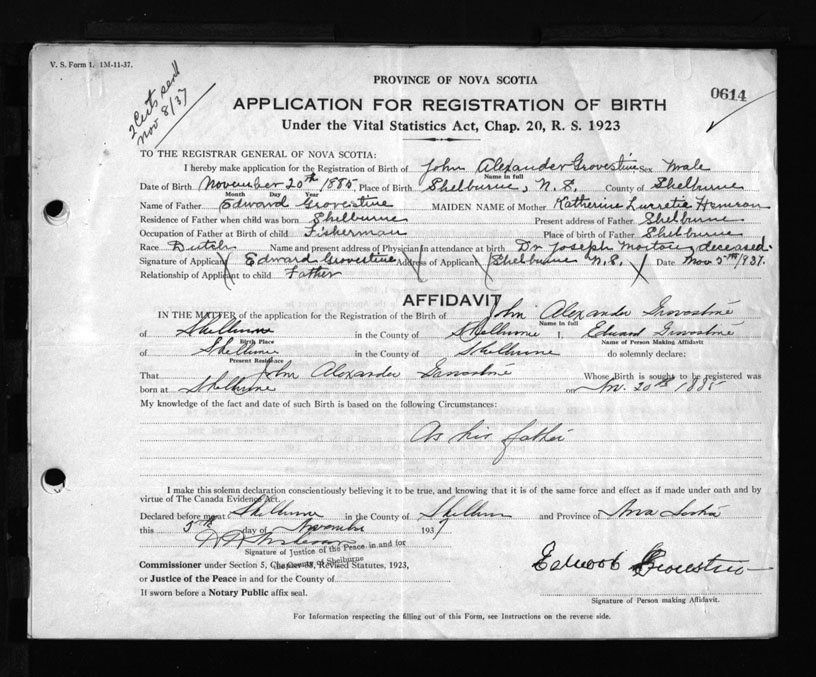 V. S. Form 1. 1M-11-37.
2 Certs send
Nov 8/37
PROVINCE OF NOVA SCOTIA
0614
APPLICATION FOR REGISTRATION OF BIRTH
Under the Vital Statistics Act, Chap. 20, R. S. 1923
TO THE REGISTRAR GENERAL OF NOVA SCOTIA:
I hereby make application for the Registration of Birth of John Alexander Grovestine Sex Male
Name in full
Date of Birth November 20th 1885. Place of Birth Shelburne, N.S. County of Shelburne
Month Day Year
Name of Father Edward Grovestine MAIDEN NAME of Mother Katherine Lucretia
Residence of Father when child was born Shelburne Present address of Father Shelburne
Occupation of Father at Birth of child Fisherman Place of birth of Father Shelburne
Race Dutch Name and present address of Physician in attendance at birth Dr Joseph deceased.
Signature of Applicant Edward Grovestine Address of Applicant Shelburne N.S. Date Nov 5th/1937.
Relationship of Applicant to child Father
AFFIDAVIT
IN THE MATTER of the application for the Registration of the Birth of John Alexander Grovestine
Name in full
of Shelburne in the County of Shelburne I, Edward Grovestine
Birth Place Name of Person Making Affidavit
of Shelburne in the County of Shelburne do solemnly declare:
Present Residence
That John Alexander Grovestine Whose Birth is sought to be registered was
born at Shelburne on Nov. 20th 1885
My knowledge of the fact and date of such Birth is based on the following Circumstances:
As his father
I make this solemn declaration conscientiously believing it to be true, and knowing that it is of the same force and effect as if made under oath and by
virtue of The Canada Evidence Act.
Declared before me at Shelburne in the County of Shelburne and Province of Nova Scotia
this 5th day of November 1937
Signature of Justice of the Peace in and for
the County of Shelburne
Commissioner under Section 5, Revised Statutes, 1923,
or Justice of the Peace in and for the County of
If sworn before a Notary Public affix seal.
Edward Grovestine
Signature of Person making Affidavit.
For Information respecting the filling out of this Form, see Instructions on the reverse side.